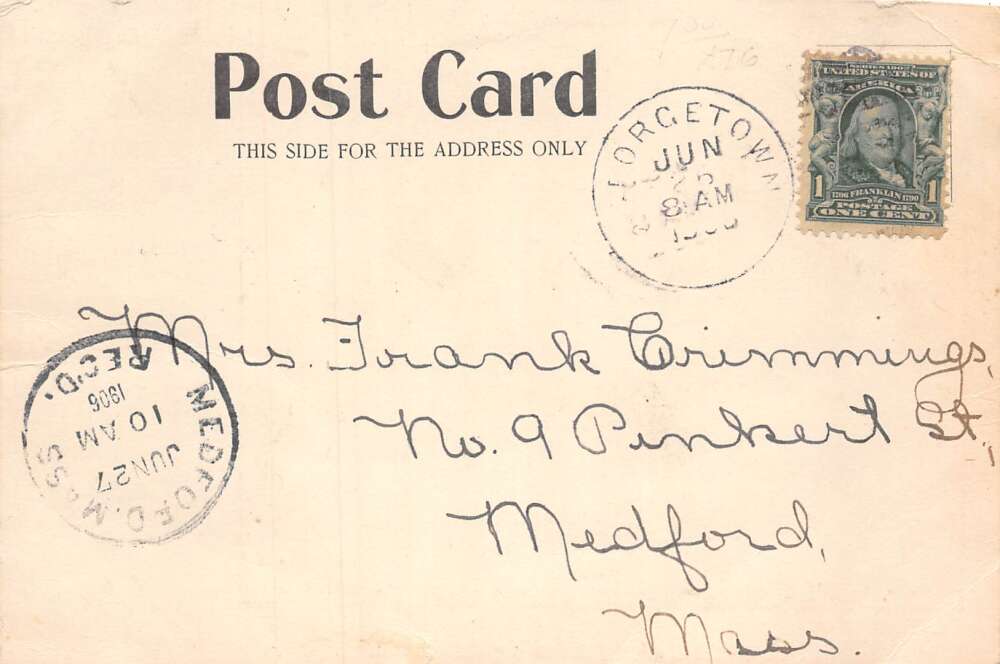 Post Card
THIS SIDE FOR THE ADDRESS ONLY
GEORGETOWN
JUN
8 AM
SERIES 1902
UNITED STATES OF
AMERICA
1 1706 FRANKLIN 1790 1
POSTAGE
ONE CENT
Mrs. Frank Crimmings,
No. 9 Pinkert St.,
Medford,
Mass.
MEDFORD, MASS
JUN 27
10 AM
1906
REC'D.